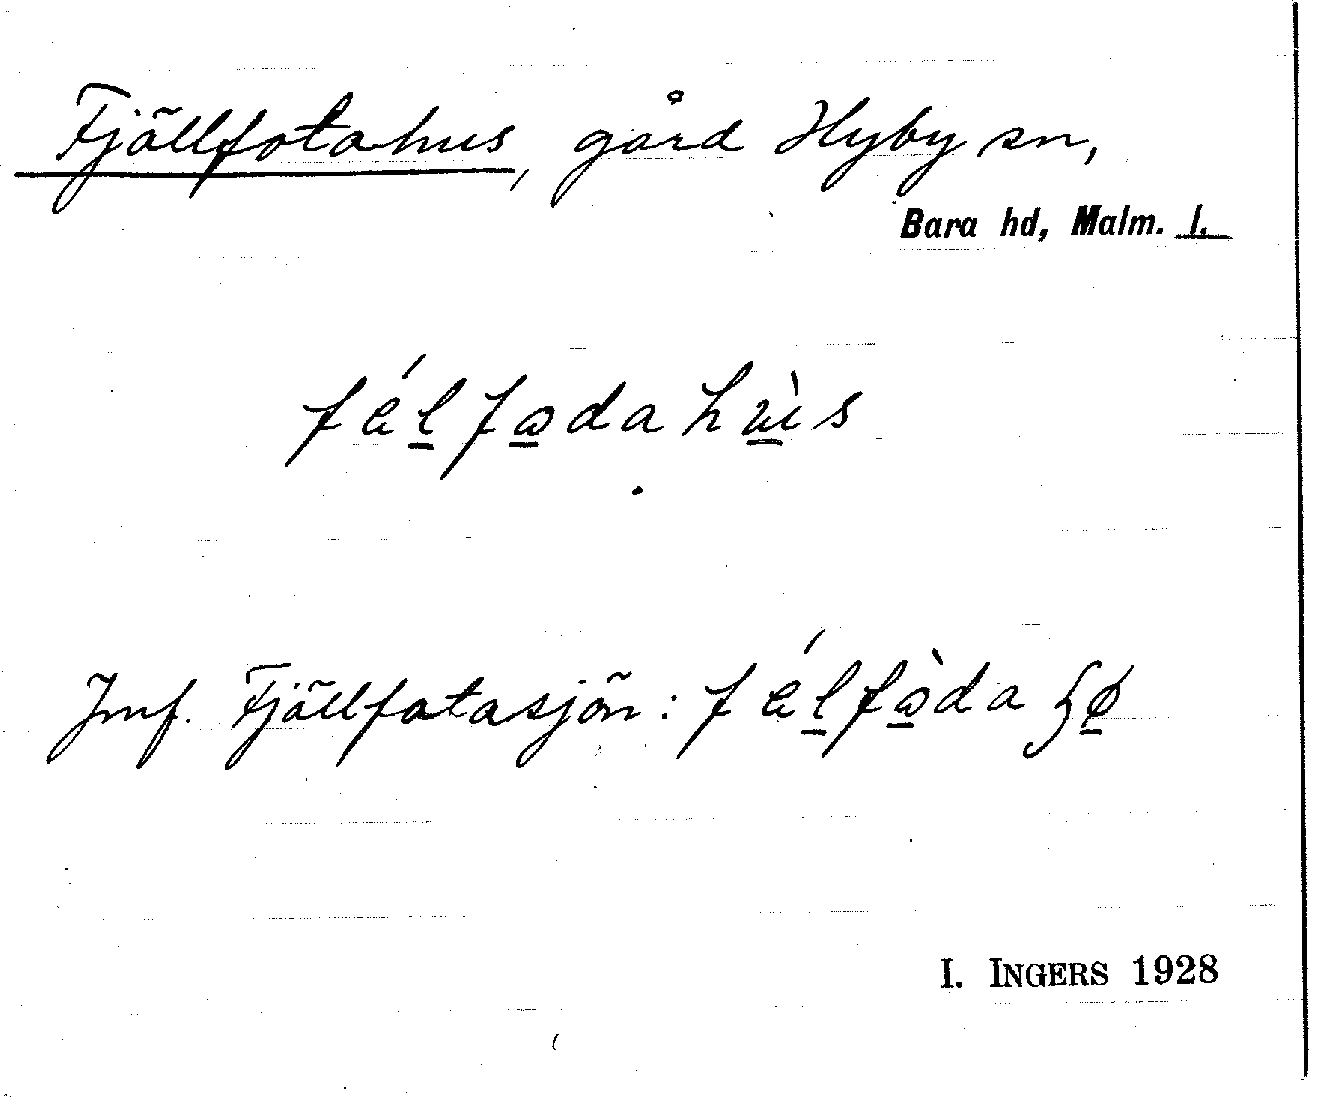 Fjällfotahus, gård Hyby sn,
Bara hd, Malm. l.
fælfodahus
Jmf. Fjällfotasjön: fælfoda
I. INGERS 1928